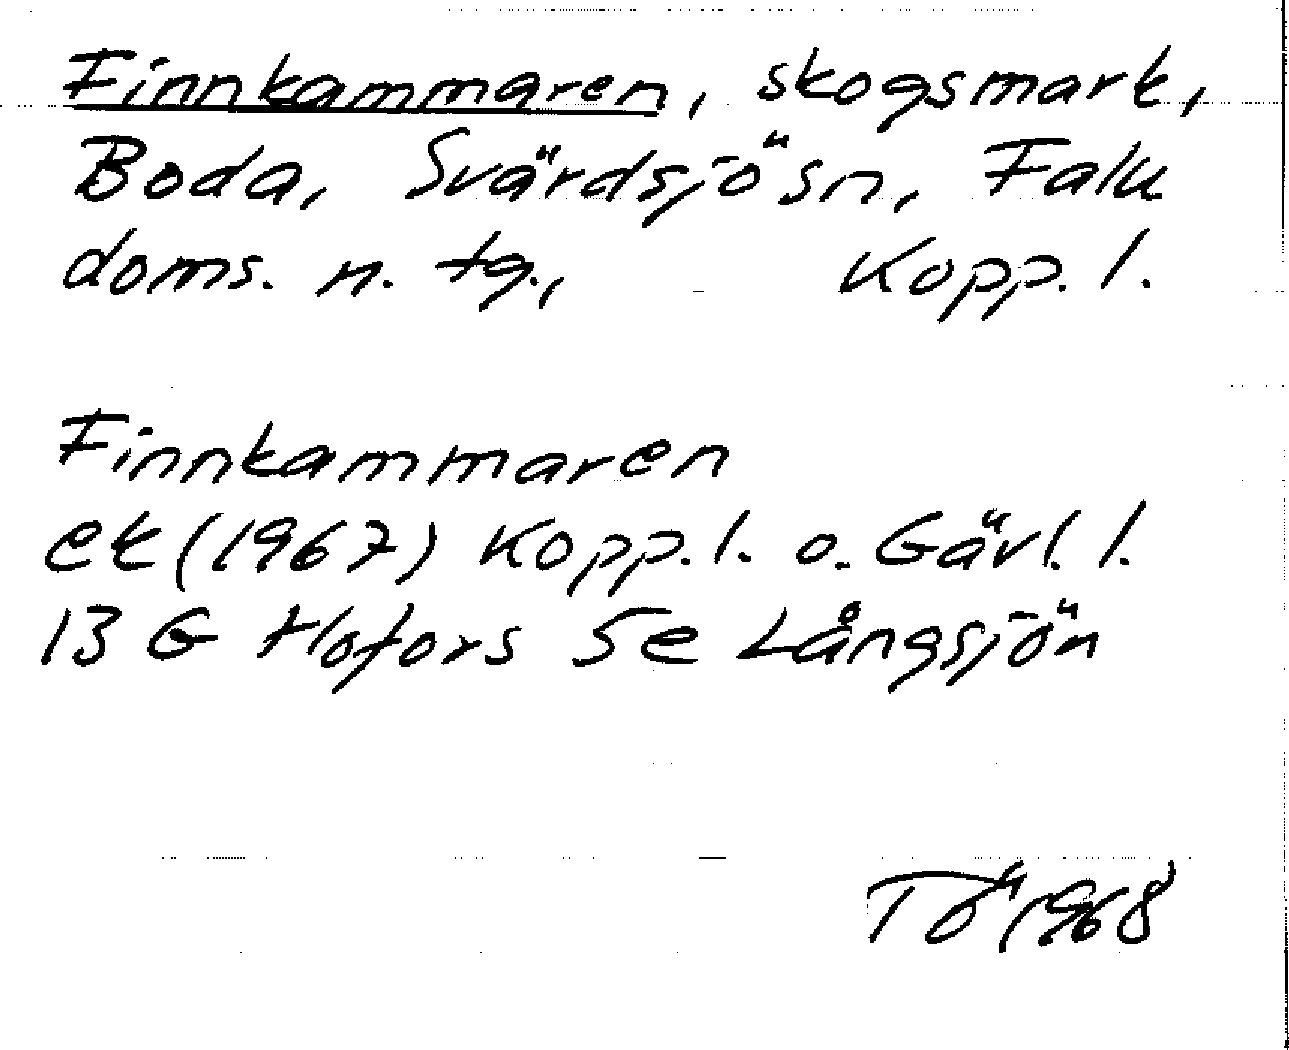 Finnkammaren, skogsmark,
Boda, Svärdsjösn, Falu
doms. n. tg., Kopp. l.
Finnkammaren
ek (1967) Kopp. l. o. Gävl. l.
13 G Hofors Se Långsjön
TÖ 1968